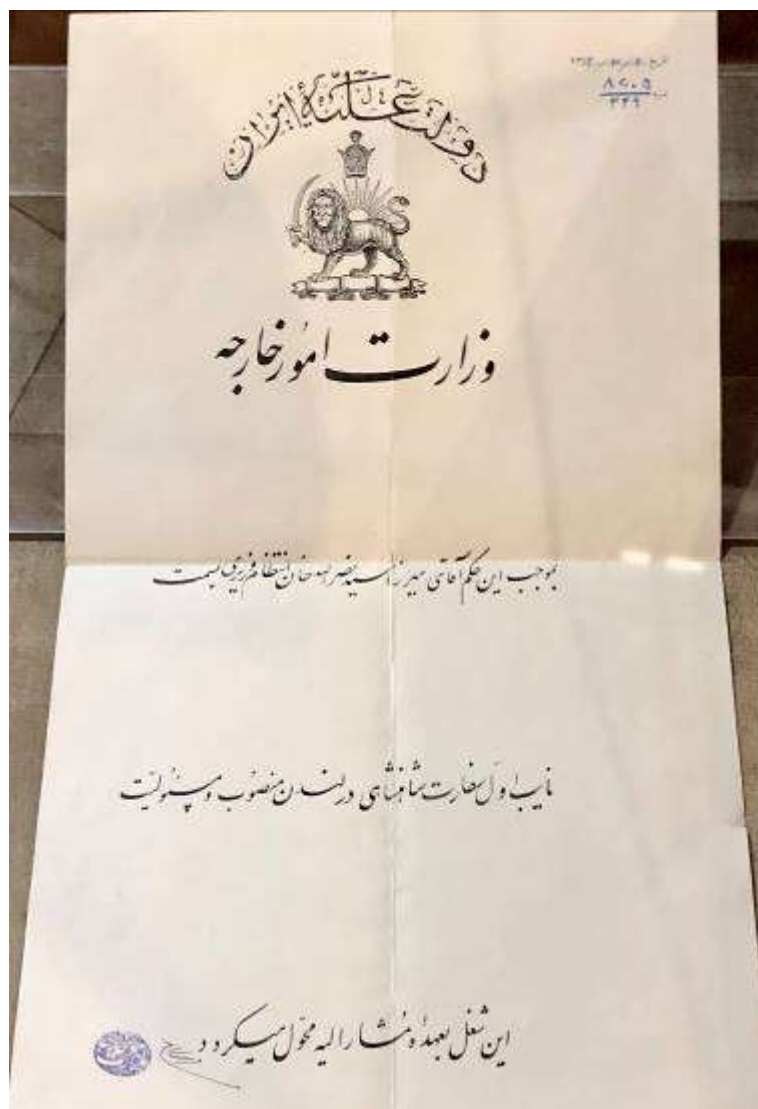 ۸۲۰۵
۳۴۹
دولت علیّهٔ ایران
وزارت امور خارجه
بموجب این حکم آقای میرزا سید نصراله خان انتظام وزیری بسمت
نایب اول سفارت شاهنشاهی در لندن منصوب و مسئولیت
این شغل بعهدهٔ مشارالیه محوّل میگردد